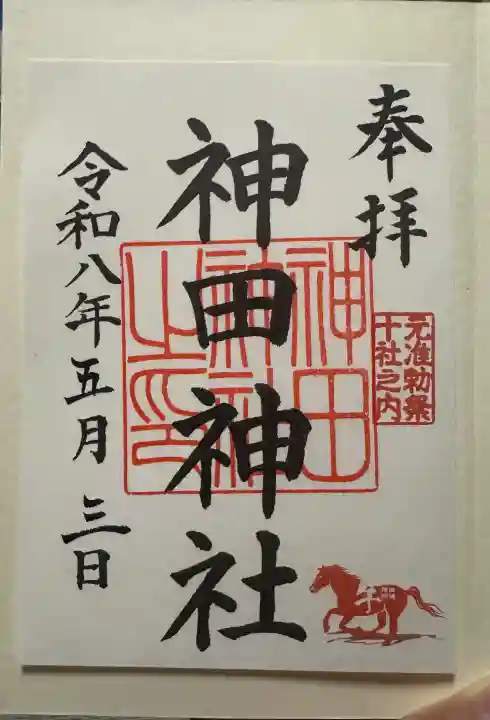 奉拝
元准勅祭
十社之内
神田神社
神田
神社
之印
令和八年五月三日